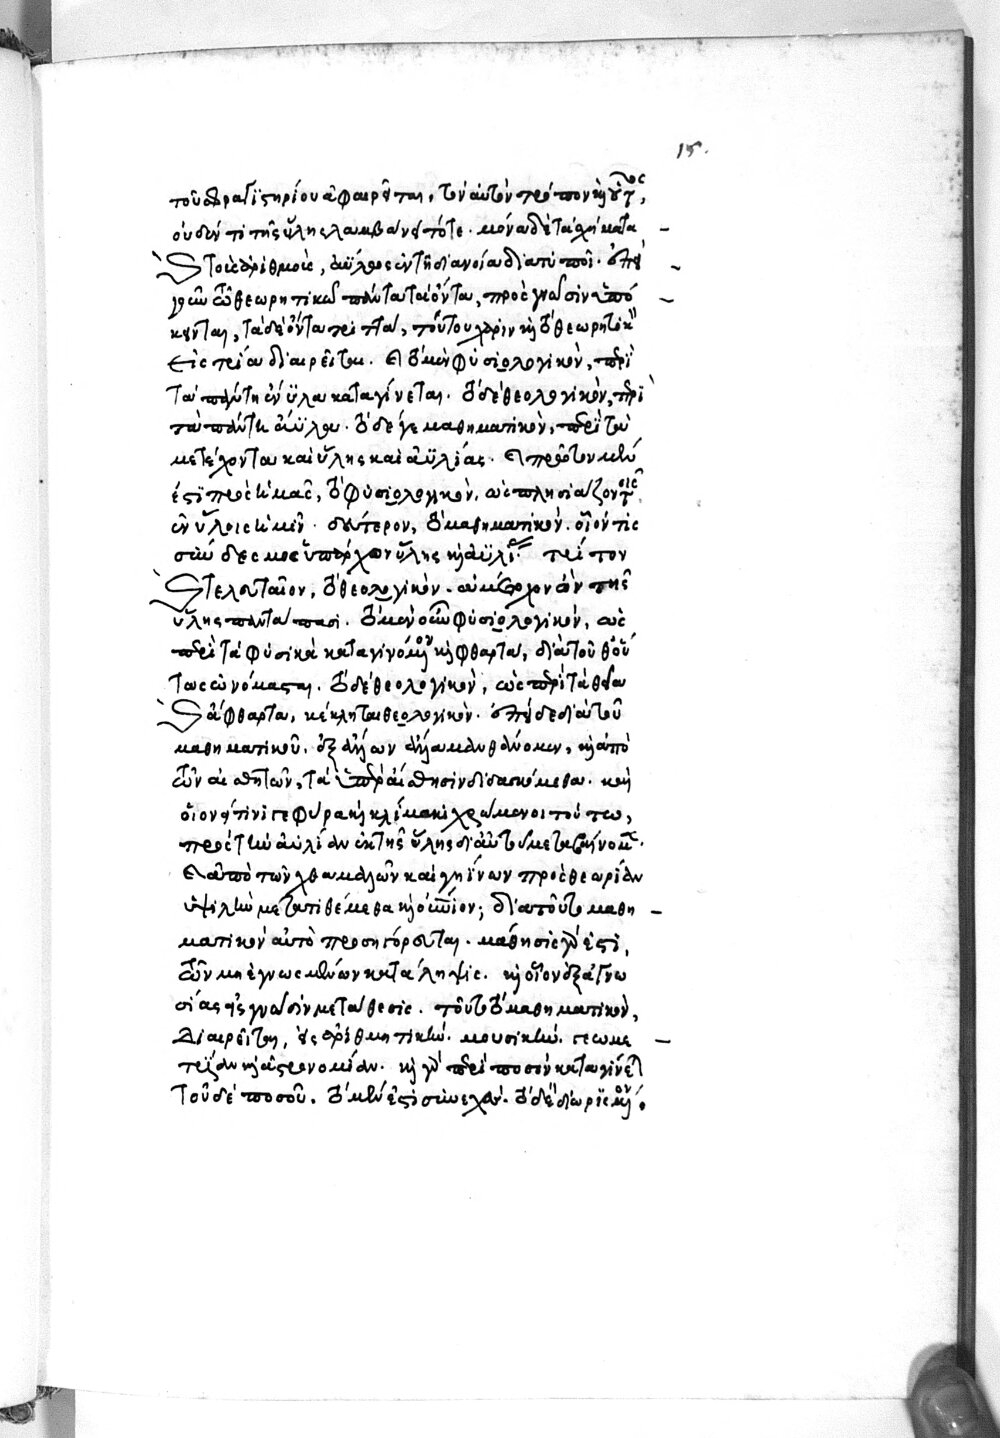 15.
τοῦ δρασίϊστηρίου ἀφαιρεῖται, τὸν αὐτὸν τρόπον καὶ οὗτος,
οὐδέν τι τῆς ὕλης λαμβάνει ποτε. μόνα δὲ τὰ σχήματα
τοὺς ἀριθμοὺς, ἀΰλως ἐν τῇ διανοίᾳ διατυποῖ. ἐπεὶ
γοῦν τῷ θεωρητικῷ πάντα τὰ ὄντα, πρὸς γνῶσιν ὑπό
κεινται, τὰ δὲ ὄντα τριττά, τούτου χάριν καὶ τὸ θεωρητικὸν
εἰς τρία διαιρεῖται. τὸ μὲν φυσιολογικὸν, περὶ
τὰ πάντη ἔνυλα καταγίνεται. τὸ δὲ θεολογικὸν, περὶ
τὰ πάντη ἄϋλα. τὸ δέ γε μαθηματικὸν, περὶ τὰ
μετέχοντα καὶ ὕλης καὶ ἀϋλίας. πρῶτον μὲν
ἐστι πρὸς ἡμᾶς, τὸ φυσιολογικὸν, ὡς πλησιάζον τοῖς
ἐν ὕλοις ἡμῖν. δεύτερον, τὸ μαθηματικὸν. οἷόν τις
σύνδεσμος ὑπάρχον ὕλης καὶ ἀϋλίας. τρίτον
τελευταῖον, τὸ θεολογικόν. ἀμέτοχον ὂν τῆς
ὕλης παντάπασι. τὸ μὲν οὖν φυσιολογικὸν, ὡς
περὶ τὰ φυσικὰ καταγινόμενον καὶ φθαρτὰ, διὰ τοῦθ' οὕ
τως ὠνόμασται. τὸ δὲ θεολογικὸν, ὡς περὶ τὰ θεῖα
ἄφθαρτα, κέκληται θεολογικὸν. ἐπεὶ δὲ διὰ τοῦ
μαθηματικοῦ, ἐξ ἄλλων ἄλλα μανθάνομεν, καὶ ἀπὸ
τῶν αἰσθητῶν, τὰ ὑπὲρ αἴσθησιν διδασκόμεθα. καὶ
οἷον τινι γεφύρα καὶ κλίμακι χρώμενοι τούτῳ,
πρὸς τὴν ἀϋλίαν ἐκ τῆς ὕλης δι' αὐτοῦ μεταβαίνομεν.
ἀπὸ τῶν χθαμαλῶν καὶ γηΐνων πρὸς θεωρίαν
ὑψηλὴν μετατιθέμεθα καὶ οὐράνιον; διὰ τοῦτο μαθη
ματικὸν αὐτὸ προσηγόρευται. μάθησις γάρ ἐστι,
τῶν μὴ ἐγνωσμένων κατάληψις. καὶ οἷον ἐξ ἀγνω
σίας εἰς γνῶσιν μετάθεσις. τοῦτο τὸ μαθηματικὸν,
διαιρεῖται, εἰς ἀριθμητικὴν. μουσικὴν. γεωμε
τρίαν καὶ ἀστρονομίαν. καὶ γὰρ περὶ ποσὸν καταγίνεται
τοῦ δὲ ποσοῦ. τὸ μὲν ἐστι συνεχὲς. τὸ δὲ διωρισμένον.